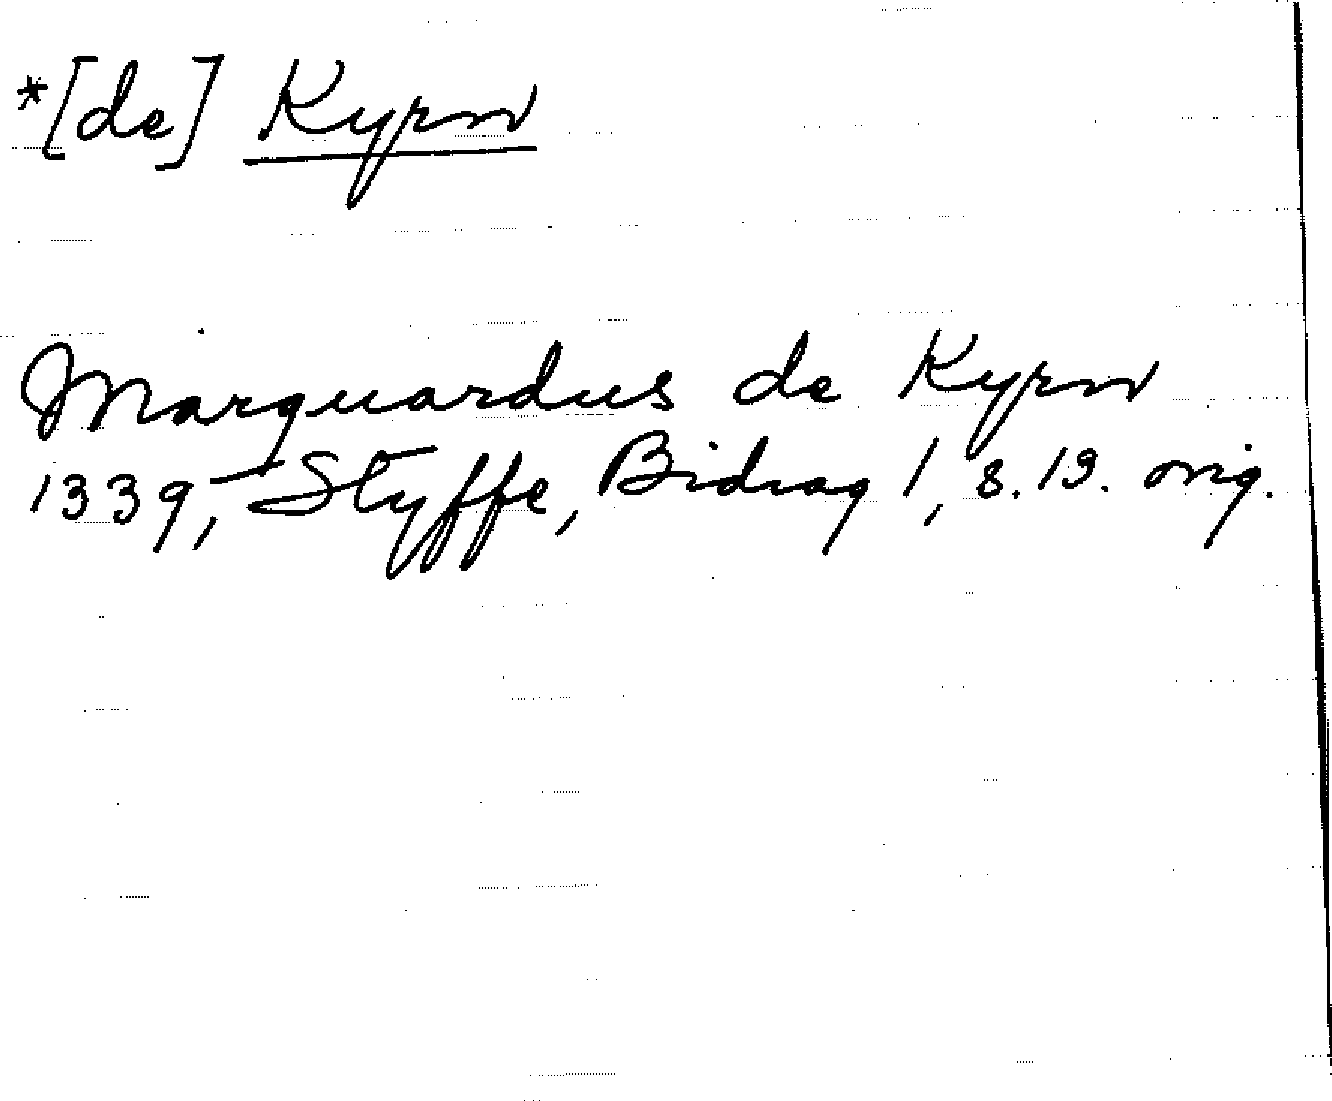 *[de] Kyrn
Marquardus de Kyrn
1339, Styffe, Bidrag 1, s. 19. orig.